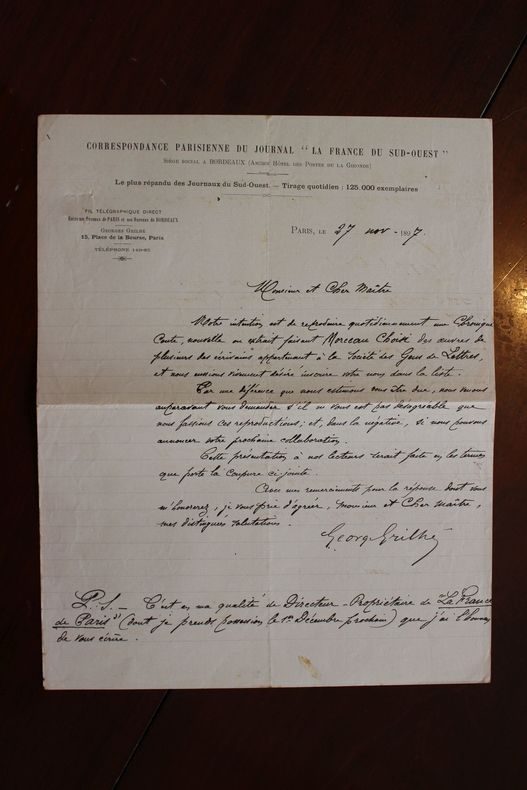 CORRESPONDANCE PARISIENNE DU JOURNAL "LA FRANCE DU SUD-OUEST"
SIÈGE SOCIAL A BORDEAUX (ANCIEN HÔTEL DES POSTES DE LA GIRONDE)
Le plus répandu des Journaux du Sud-Ouest. — Tirage quotidien : 125.000 exemplaires
FIL TÉLÉGRAPHIQUE DIRECT
Entre nos Bureaux de PARIS et nos Bureaux de BORDEAUX
GEORGES GRILHÉ
15, Place de la Bourse, Paris
TÉLÉPHONE
PARIS, LE 27 nov - 1897.
Monsieur et Cher Maître
Notre intention est de reproduire quotidiennement une Chronique
Conte, nouvelle ou extrait faisant Morceau Choisi des œuvres de
plusieurs des écrivains appartenant à la Société des Gens de Lettres,
et nous aurions vivement désiré inscrire votre nom dans la liste.
Par une déférence que nous estimons vous être due, nous venons
auparavant vous demander s'il ne vous est pas désagréable que
nous fassions ces reproductions; et, dans la négative, si nous pouvons
annoncer votre prochaine collaboration.
Cette présentation à nos lecteurs serait faite en les termes
que porte la coupure ci-jointe.
Avec mes remerciements pour la réponse dont vous
m'honorerez, je vous prie d'agréer, Monsieur et Cher Maître,
mes distinguées salutations.
Georges Grilhé
P.-S. — C'est en ma qualité de Directeur-Propriétaire de "La France
de Paris" (dont je prends possession le 1er Décembre prochain) que j'ai l'honneur
de vous écrire.